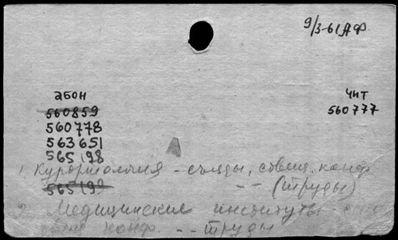 9/3-61 АФ
абон
чит
560859
560777
560778
563651
565198
А
1. Курортология - съезды, совещ. конф.
565199 -- (труды)
2. Медицинские институты -
конф. -- труды